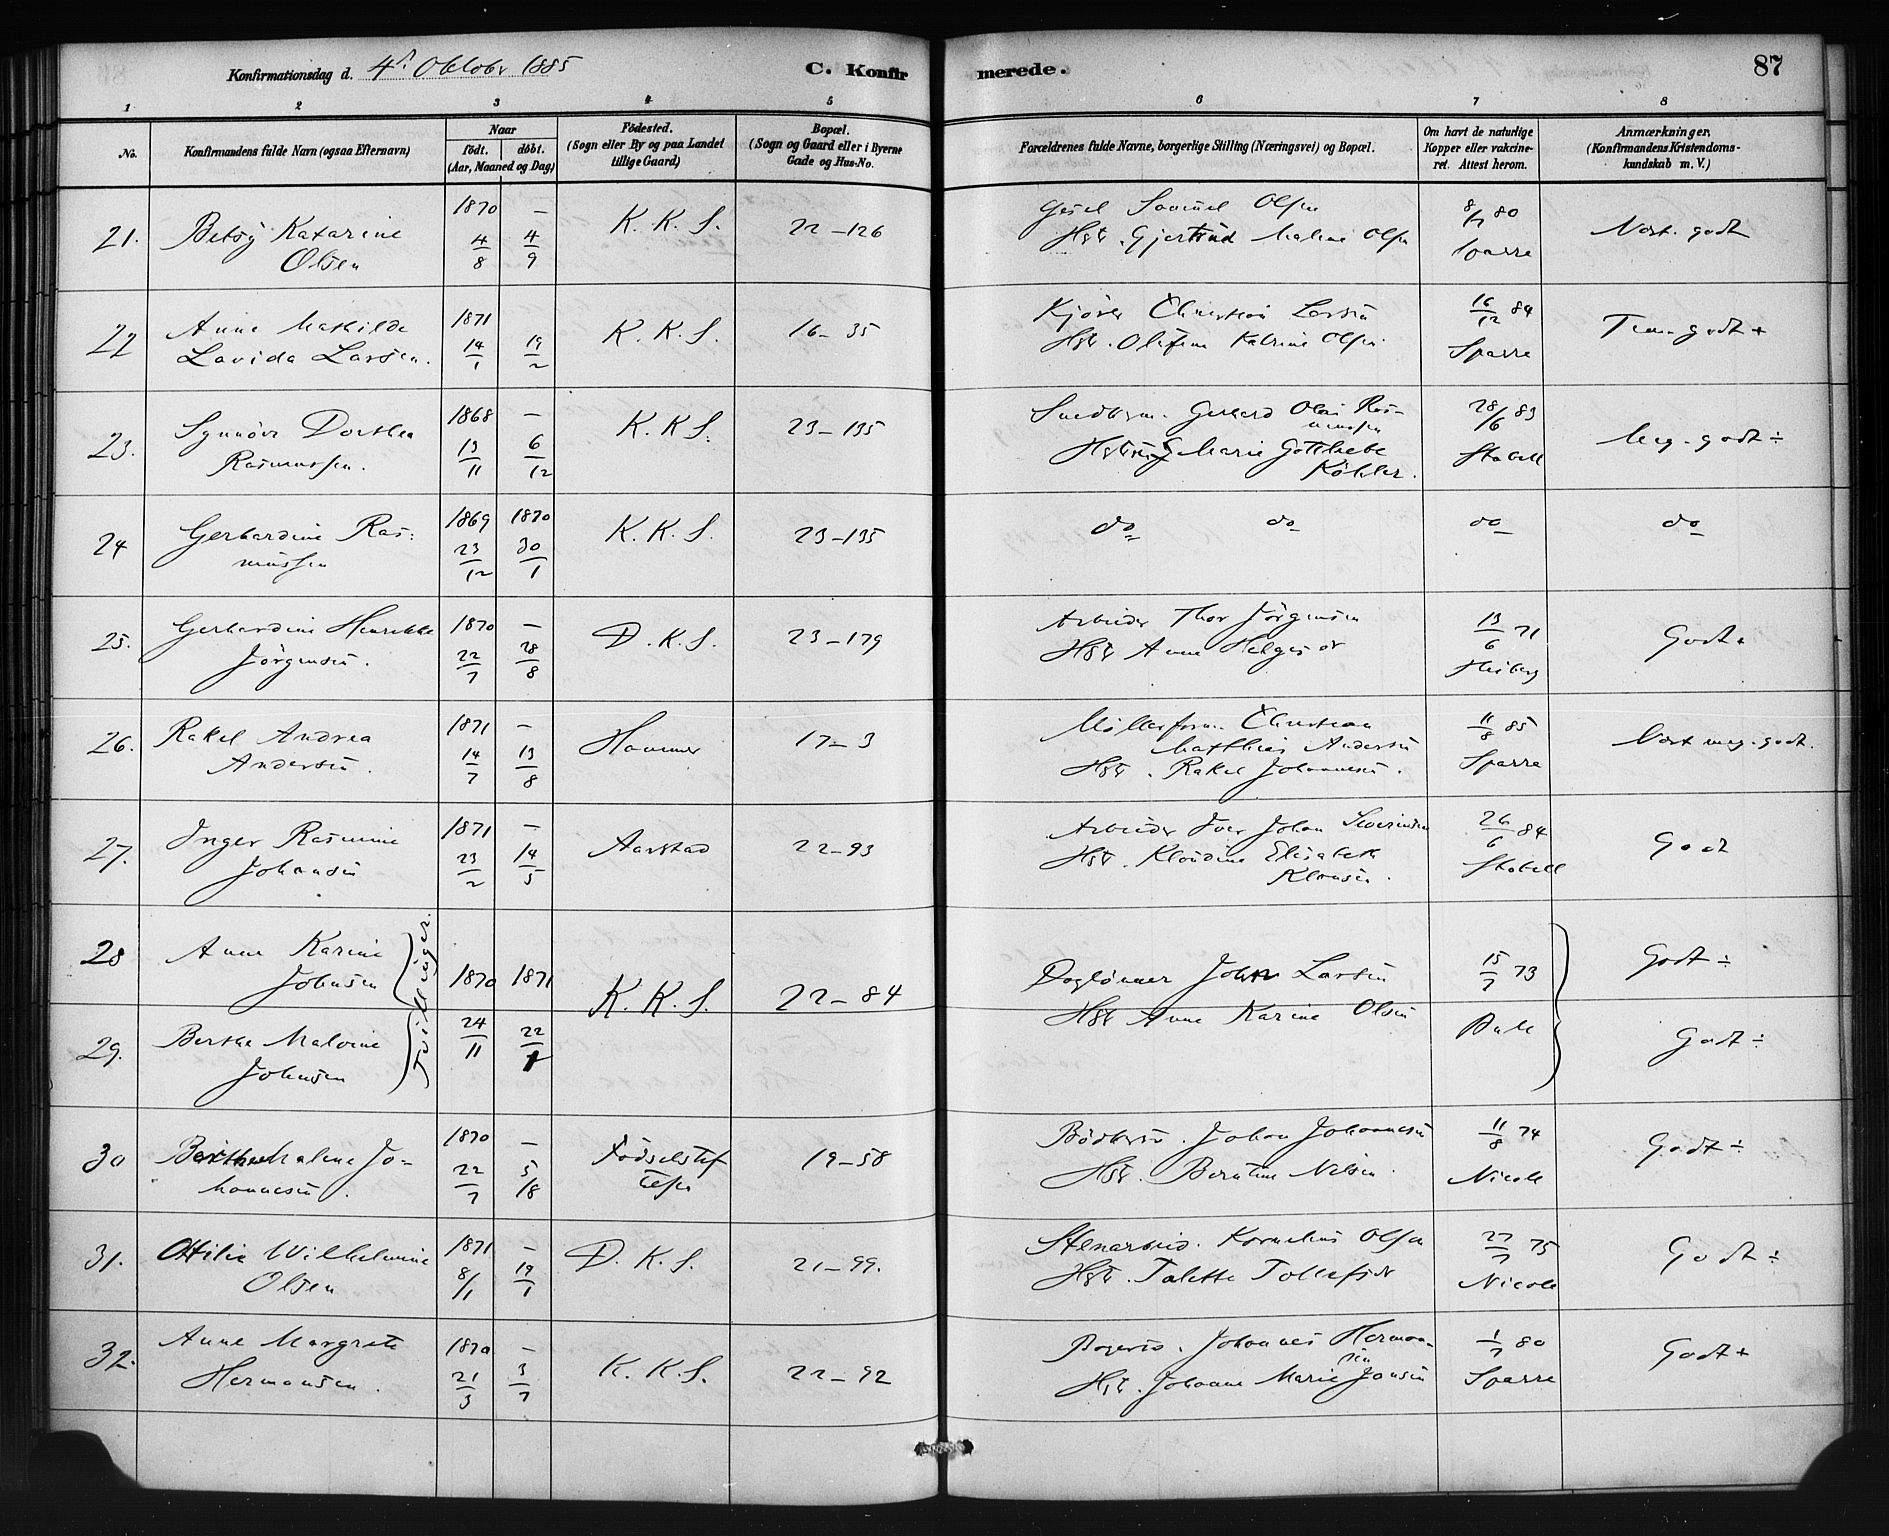 Konfirmationsdag d. 4de Oktobr 1885
C. Konfirmerede.
87
1 2 3 4 5 6 7 8
No.
Konfirmandens fulde Navn (ogsaa Efternavn)
Naar
födt. döbt.
(Aar, Maaned og Dag)
Födested.
(Sogn eller By og paa Landet
tillige Gaard)
Bopæl.
(Sogn og Gaard eller i Byerne
Gade og Hus-No.
Forældrenes fulde Navne, borgerlige Stilling (Næringsvei) og Bopæl.
Om havt de naturlige
Kopper eller vakcine-
ret. Attest herom.
Anmærkninger.
(Konfirmandens Kristendoms-
kundskab m. V.)
21. Betsy Katarine
Olsen
1870 —
4/8 4/9
K. K. S.
22 – 126
Samuel Olsen
Hstr. Gjertrud Maline Olsen
8/7 80
Sparre
Næst. godt
22 Anne Matilde
Lavida Larsen.
1871
14/1 19/2
K. K. S.
16 – 35
Kjörer Christian Larsen
Hstr. Olufine Katrine Olsen.
16/12 84
Sparre
Tem. godt +
23. Synnöve Dorthea
Rasmussen.
1868 —
13/11 6/12
K. K. S.
23 – 135
Gerhard Olai Ras-
mussen
Marie Gottliebe
Köhler.
28/6 83
Stabell
Meg. godt ÷
24 Gerhardine Ras-
mussen
1869 1870
23/12 30/1
K. K. S.
23 – 135
do do do do
25. Gerhardine Henrikke
Jörgensen.
1870 —
22/7 28/8
D. K. S.
23 – 179
Arbeider Thor Jörgensen
Hstr Anne Helgesdr
13/6 71
Heiberg
Godt
26. Rakel Andrea
Andersen.
1871 —
14/7 13/8
Hammer
17 – 3
Möllerform. Christian
Matthias Andersen
Hstr. Rakel Johannesen.
11/8 85
Sparre
Næst meg. godt.
27. Inger Rasmine
Johansen
1871 —
23/2 14/5
Aarstad
22 – 93
Arbeider Iver Johan Severinsen
Hstr. Klaudine Elisabeth
Klausen.
26/6 84
Stabell
Godt
28 Anne Karine
Johnsen
Tvillinger.
1870 1871
K. K. S.
22 – 84
Daglönner John Larsen
15/7 73
Godt ÷
29. Berthe Malvine
Johnsen
24/11 22/1
Hstr Anne Karine Olsen
Dahl
Godt ÷
30 Berthe Malene Jo-
hannesen.
1870 —
22/7 5/18
Födselsstif
telsen
19 – 58
Bödkersv. Johan Johannesen
Hstr. Berntine Nilsen.
11/8 74
Nicole
Godt ÷
31. Ottilie Wilhelmine
Olsen
1871 —
8/1 19/1
D. K. S.
21 – 99.
Stenarbeid. Kornelius Olsen
Hstr. Talette Tollefsdr
27/7 75
Nicole
Godt ÷
32. Anne Margrete
Hermansen.
1870 —
21/3 3/7
K. K. S.
22 – 92
Bagersv. Johannes Herman-
sen
Hstr. Johanne Marie Jansen
1/7 80
Sparre
Godt +